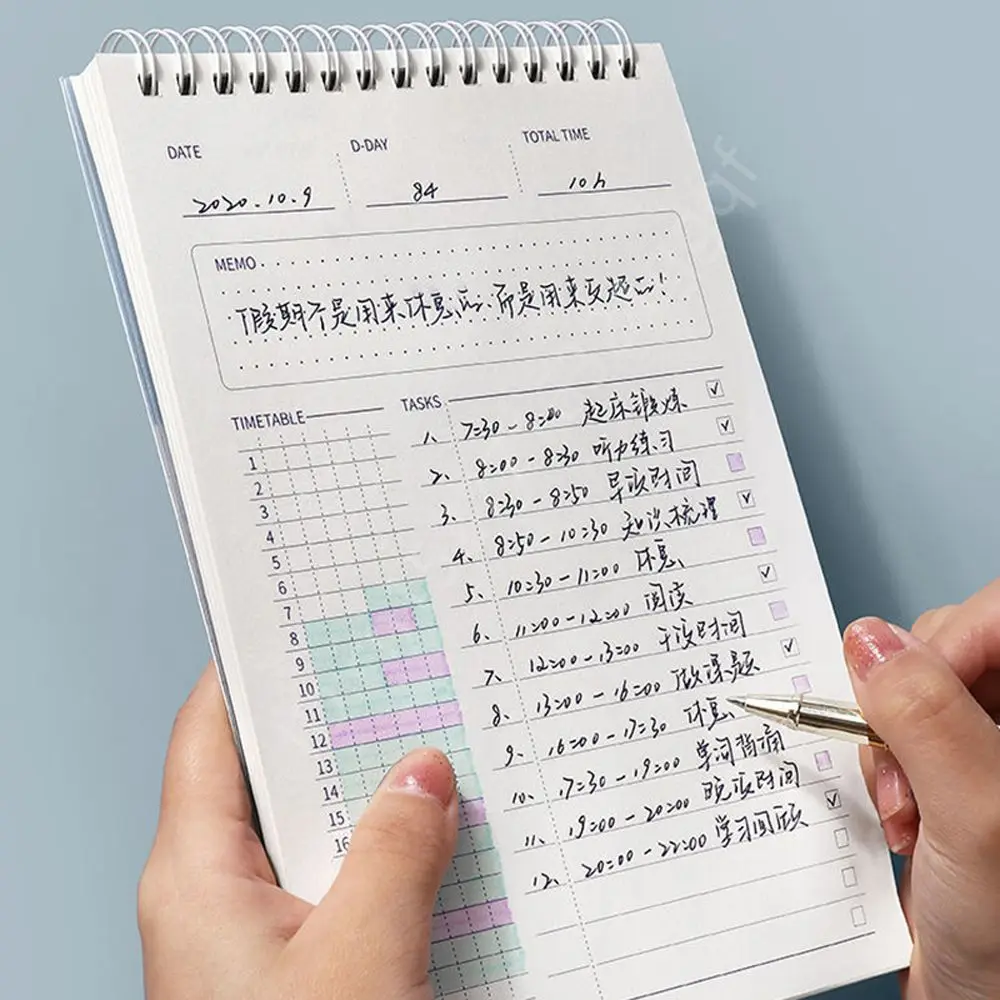 DATE D-DAY TOTAL TIME
2020.10.9 84 10h
MEMO
假期不是用来休息的、而是用来反超的!
TIMETABLE TASKS
1、 7:30 - 8:00 起床锻炼
2、 8:00 - 8:30 听力练习
3、 8:30 - 8:50 早饭时间
4、 8:50 - 10:30 知识梳理
5、 10:30 - 11:00 休息
6、 11:00 - 12:00 阅读
7、 12:00 - 13:00 午饭时间
8、 13:00 - 16:00 做课题
9、 16:00 - 17:30 休息
10、 17:30 - 19:00 单词背诵
11、 19:00 - 20:00 晚饭时间
12、 20:00 - 22:00 学习回顾
1
2
3
4
5
6
7
8
9
10
11
12
13
14
15
16